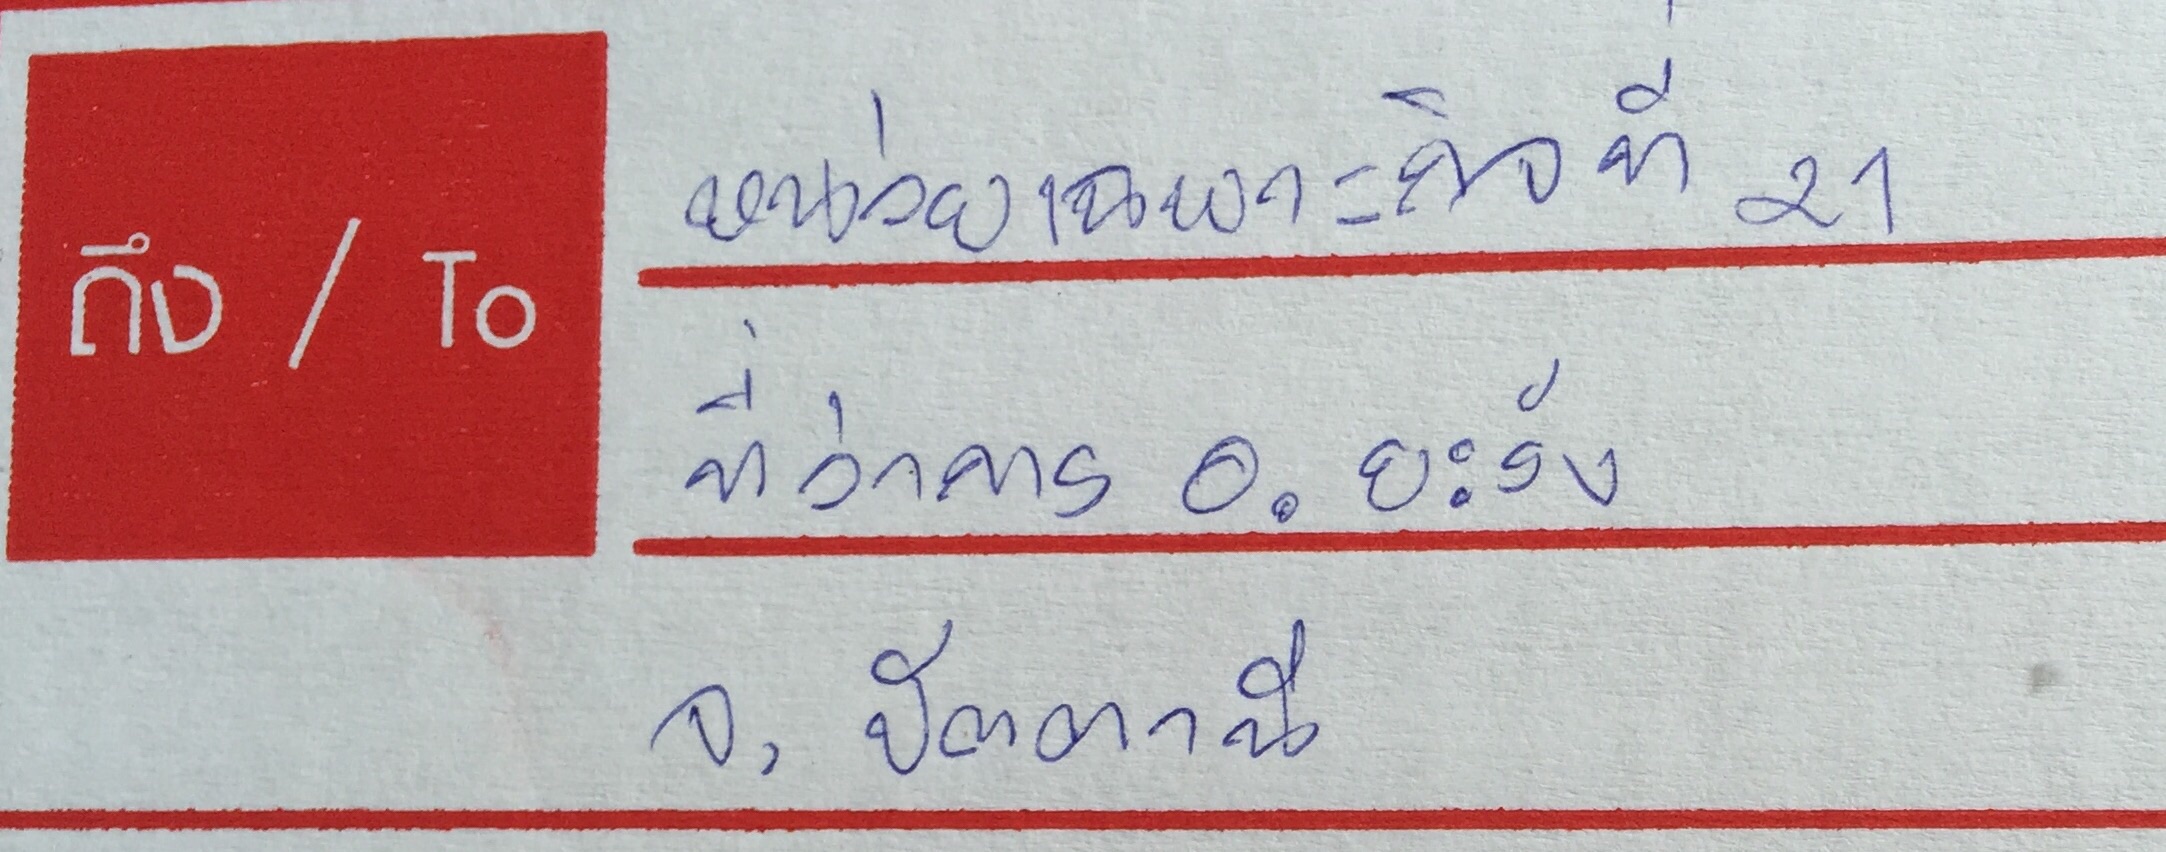 ถึง / To
หน่วยเฉพาะกิจที่ 21
ที่ว่าการ อ. ยะรัง
จ. ปัตตานี